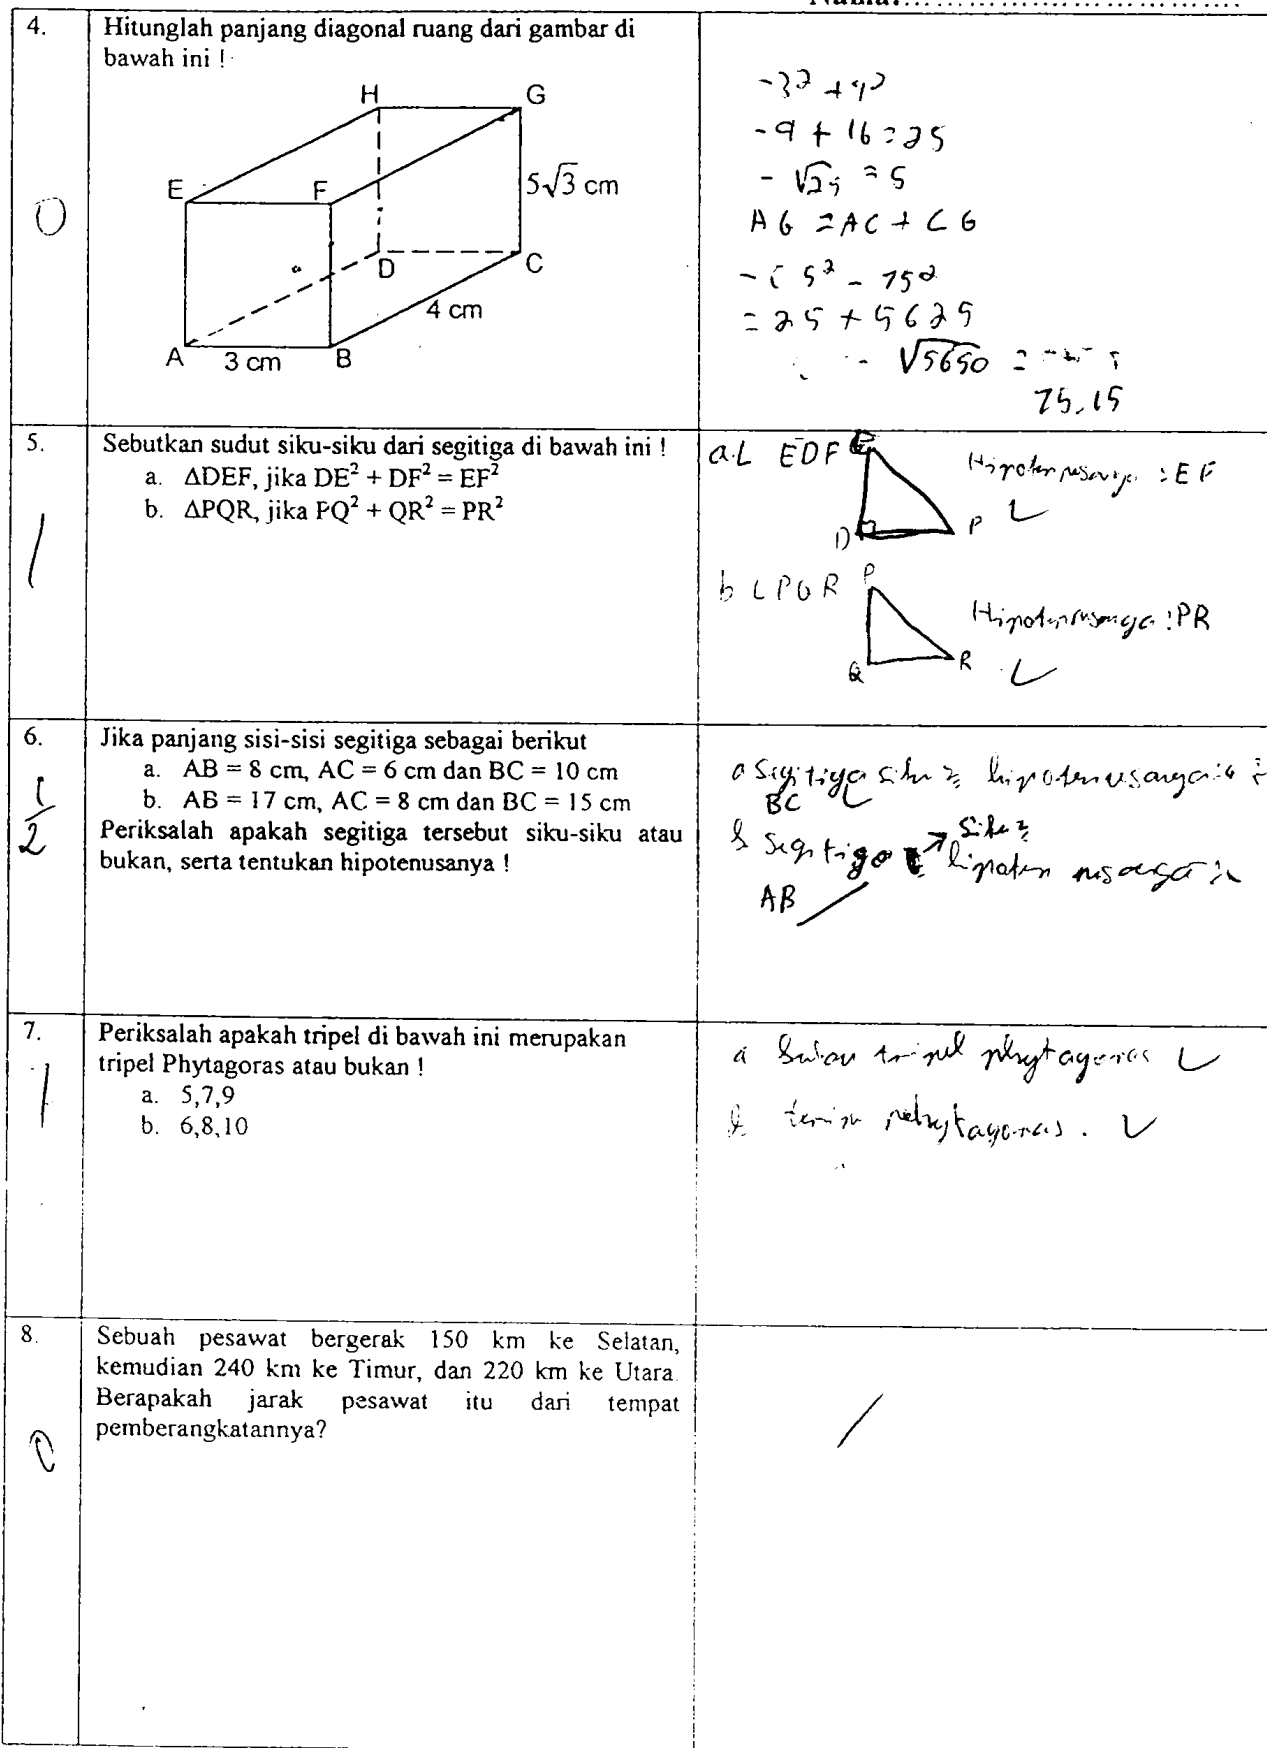 Nama:
4.
Hitunglah panjang diagonal ruang dari gambar di
bawah ini !
H
G
E
F
5√3 cm
D
C
4 cm
A
B
3 cm
0
-3² + 4²
-9 + 16 = 25
- √25 = 5
AG = AC + CG
5² - 75²
= 25 + 5625
- √5650 =
75,15
5.
Sebutkan sudut siku-siku dari segitiga di bawah ini !
a. ΔDEF, jika DE² + DF² = EF²
b. ΔPQR, jika PQ² + QR² = PR²
1
a. L EDF
Hipotenusanya : EF
D
b L PQR
P
Hipotenusanya : PR
Q
R
6.
Jika panjang sisi-sisi segitiga sebagai berikut
a. AB = 8 cm, AC = 6 cm dan BC = 10 cm
b. AB = 17 cm, AC = 8 cm dan BC = 15 cm
Periksalah apakah segitiga tersebut siku-siku atau
bukan, serta tentukan hipotenusanya !
1/2
a Segitiga siku2 hipotenusanya
BC
b Segitiga siku2 hipotenusanya
AB
7.
Periksalah apakah tripel di bawah ini merupakan
tripel Phytagoras atau bukan !
a. 5,7,9
b. 6,8,10
1
a Bukan tripel phytagoras
b
8.
Sebuah pesawat bergerak 150 km ke Selatan,
kemudian 240 km ke Timur, dan 220 km ke Utara.
Berapakah jarak pesawat itu dari tempat
pemberangkatannya?
0